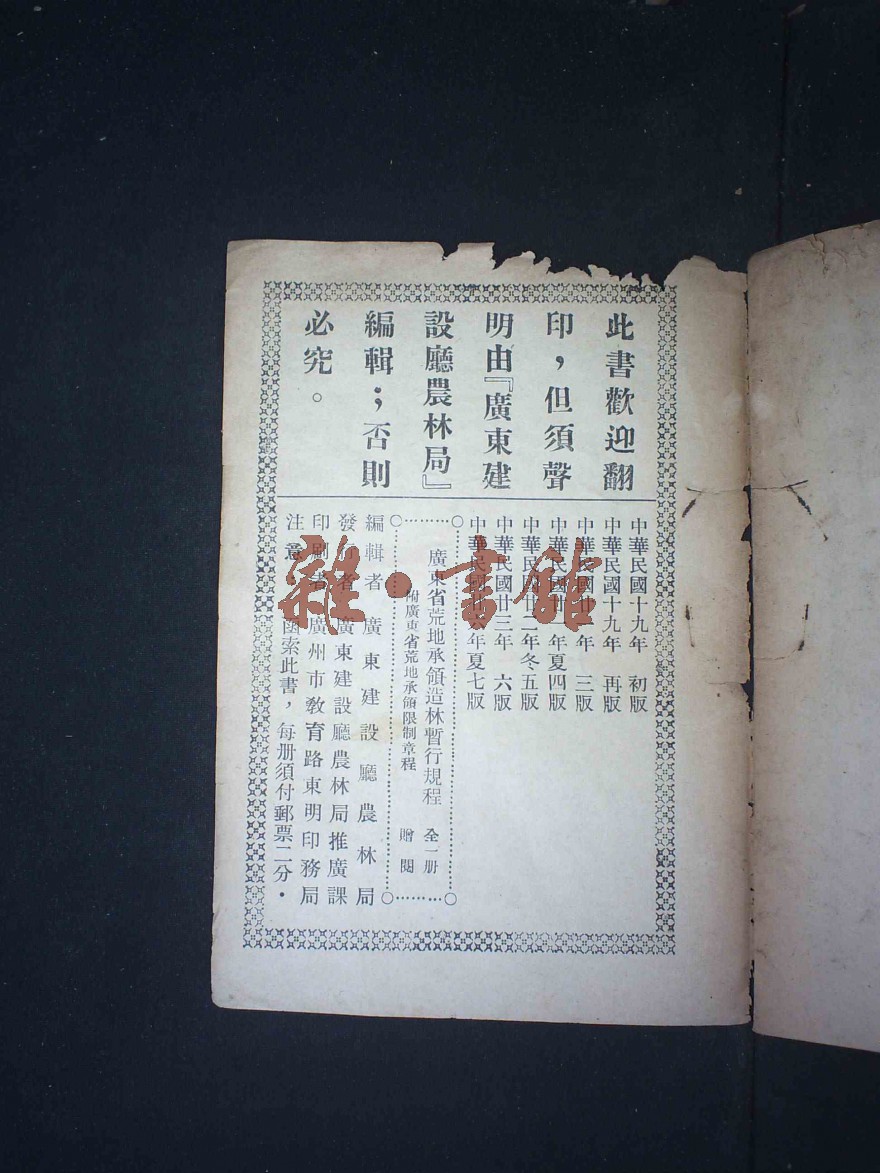 此書歡迎翻
印，但須聲
明由『廣東建
設廳農林局』
編輯；否則
必究。
中華民國十九年　初版
中華民國十九年　再版
中華民國廿一年　三版
中華民國廿　年夏四版
中華民國廿二年冬五版
中華民國廿三年　六版
中華民國廿　年夏七版
廣東省荒地承領造林暫行規程　全一册
附廣東省荒地承領限制章程　贈閱
編輯者　廣東建設廳農林局
發行者　廣東建設廳農林局推廣課
印刷者　廣州市教育路東明印務局
注意：函索此書，每册須付郵票二分・
雜・書館